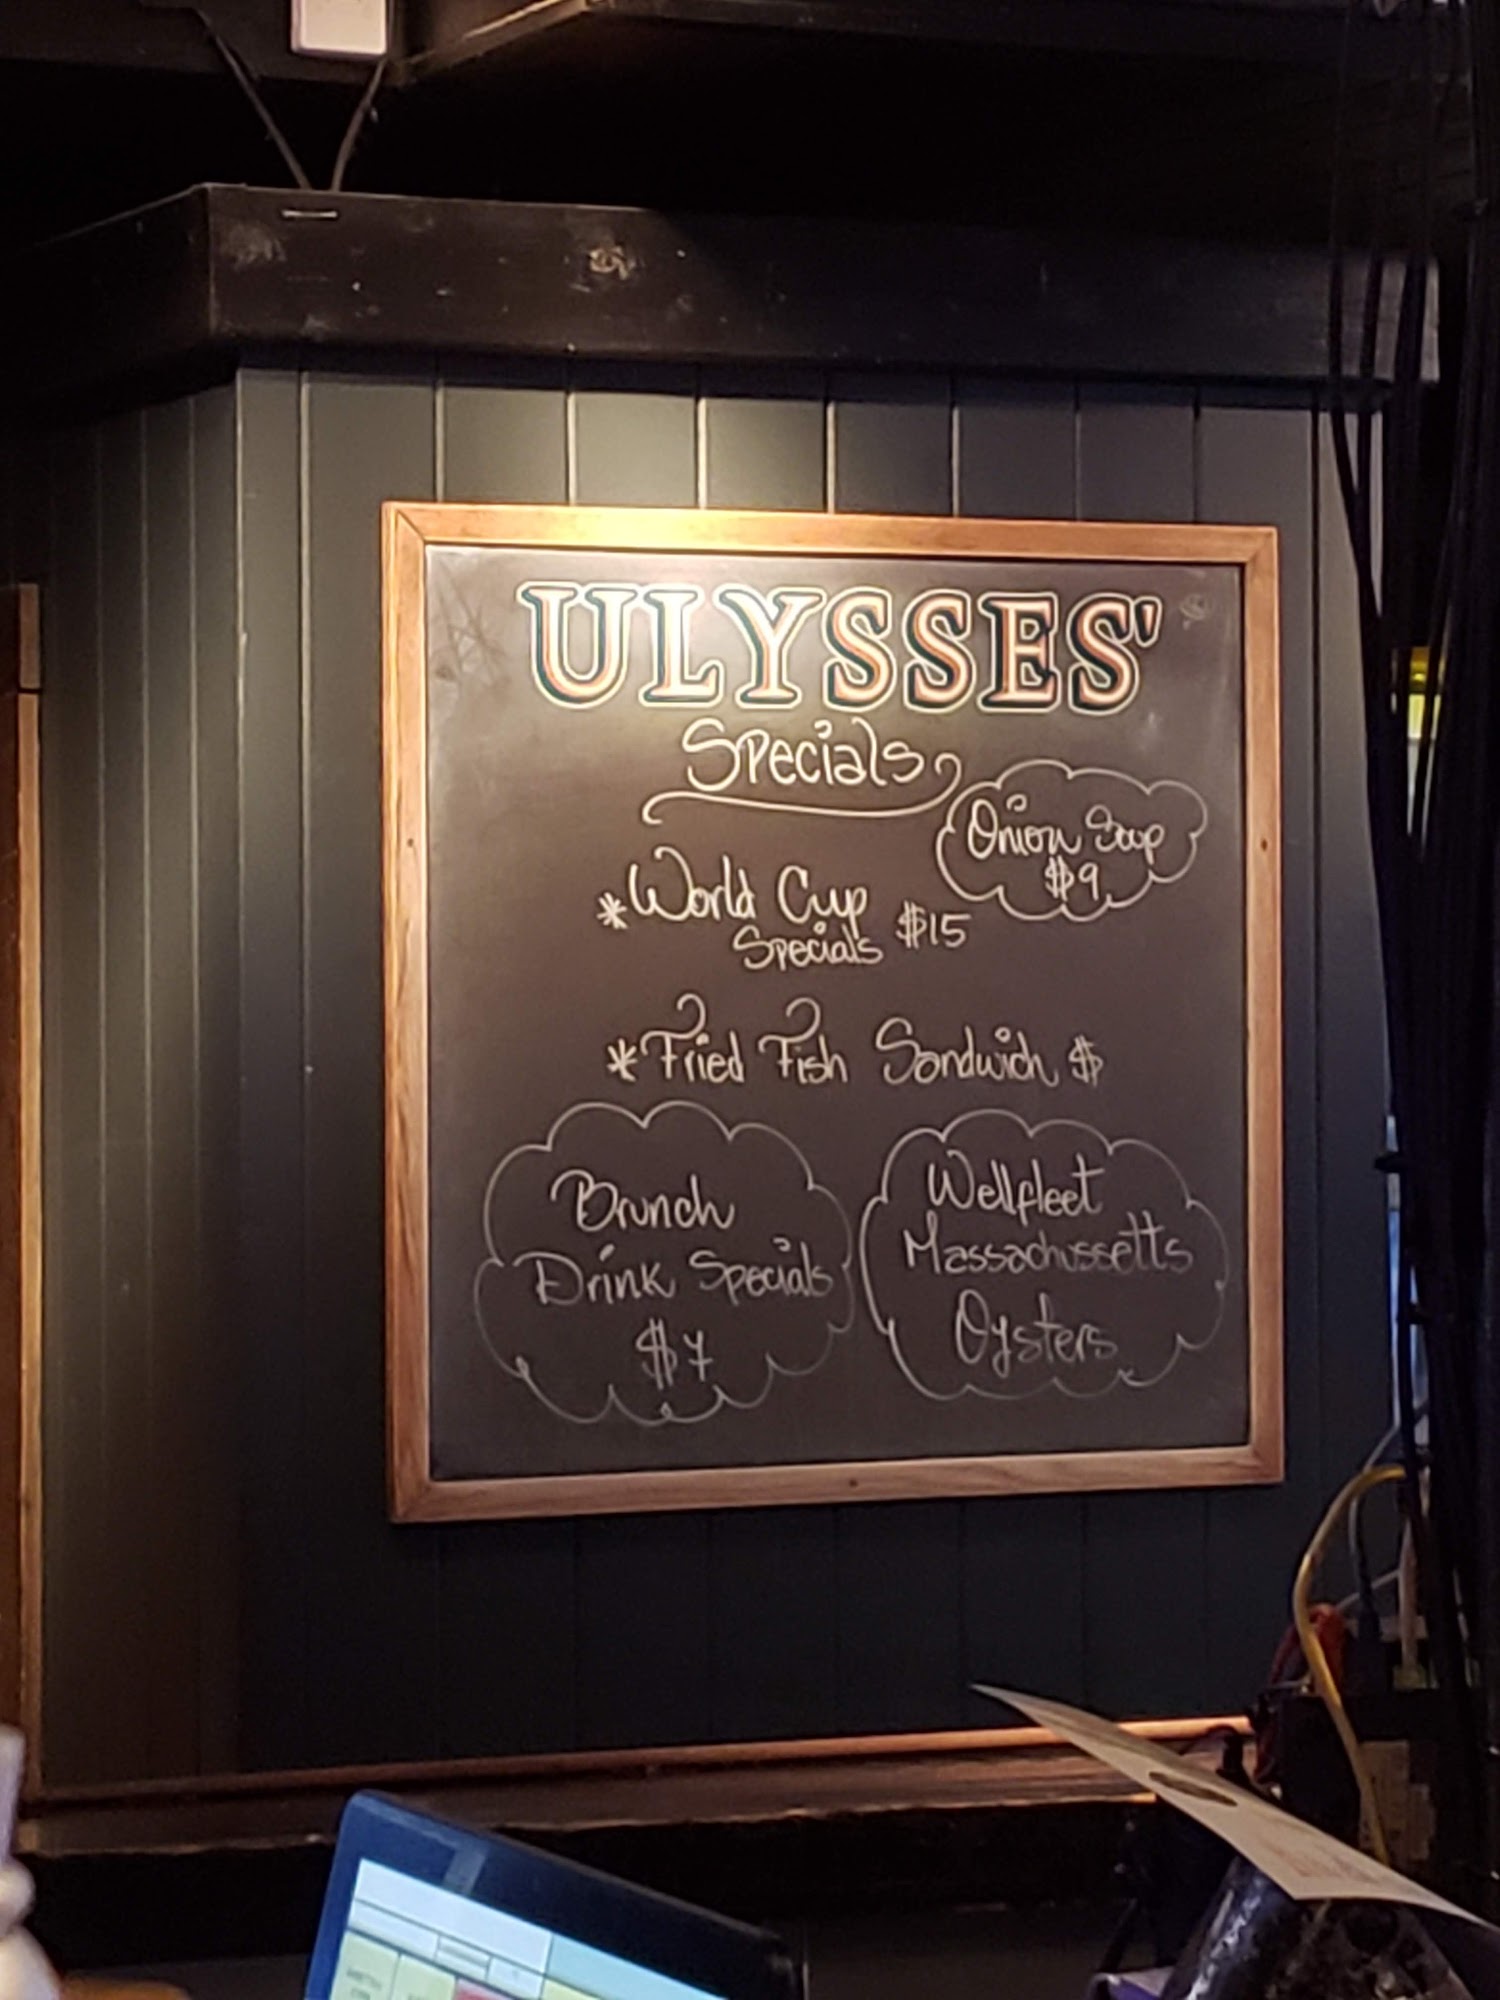 ULYSSES'
Specials
Onion Soup
$9
*World Cup
Specials $15
*Fried Fish Sandwich $
Brunch
Drink Specials
$7
Wellfleet
Massachussetts
Oysters